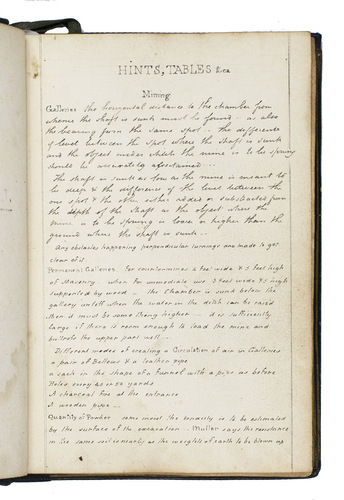 HINTS, TABLES &ca
Mining
Galleries the horizontal distance to the chamber from
whence the shaft is sunk must be found - as also
the bearing from the same spot - the difference
of level between the spot where the shaft is sunk
and the object under which the mine is to be sprung
should be accurately ascertained
The shaft is sunk as low as the mine is meant to
be deep & the difference of the level between the
one spot & the other either added or substracted from
the depth of the shaft as the object where the
mine is to be sprung is lower or higher than the
ground where the shaft is sunk -
Any obstacles happening perpendicular turnings are made to get
clear of it
Permanent Galleries for countermines 2 feet wide & 5 feet high
of Masonry when for immediate use 3 feet wide & 5 high
supported by wood - the Chamber is sunk below the
gallery untoff when the water in the ditch can be raised
then it must be something higher - it is sufficiently
large if there is room enough to load the mine and
buttress the upper part well
Different modes of creating a Circulation of air in Galleries
a pair of Bellows & a leather pipe
a sack in the shape of a funnel with a pipe as before
Holes every 40 or 50 yards
A charcoal fire at the entrance
A wooden pipe
Quantity of Powder some insist the tenacity is to be estimated
by the surface of the excavation - Muller says the resistance
in the same soil is nearly as the weights of earth to be blown up